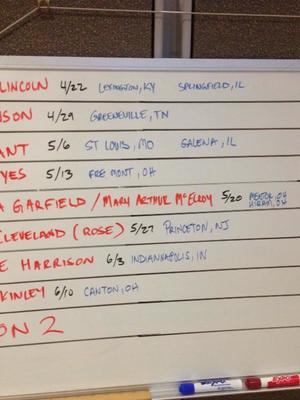 LINCOLN 4/22 LEXINGTON, KY SPRINGFIELD, IL
NSON 4/29 GREENEVILLE, TN
ANT 5/6 ST LOUIS, MO GALENA, IL
YES 5/13 FREMONT, OH
A GARFIELD / MARY ARTHUR McELROY 5/20 MENTOR, OH
HIRAM, OH
CLEVELAND (ROSE) 5/27 PRINCETON, NJ
E HARRISON 6/3 INDIANAPOLIS, IN
KINLEY 6/10 CANTON, OH
ON 2
EXPO